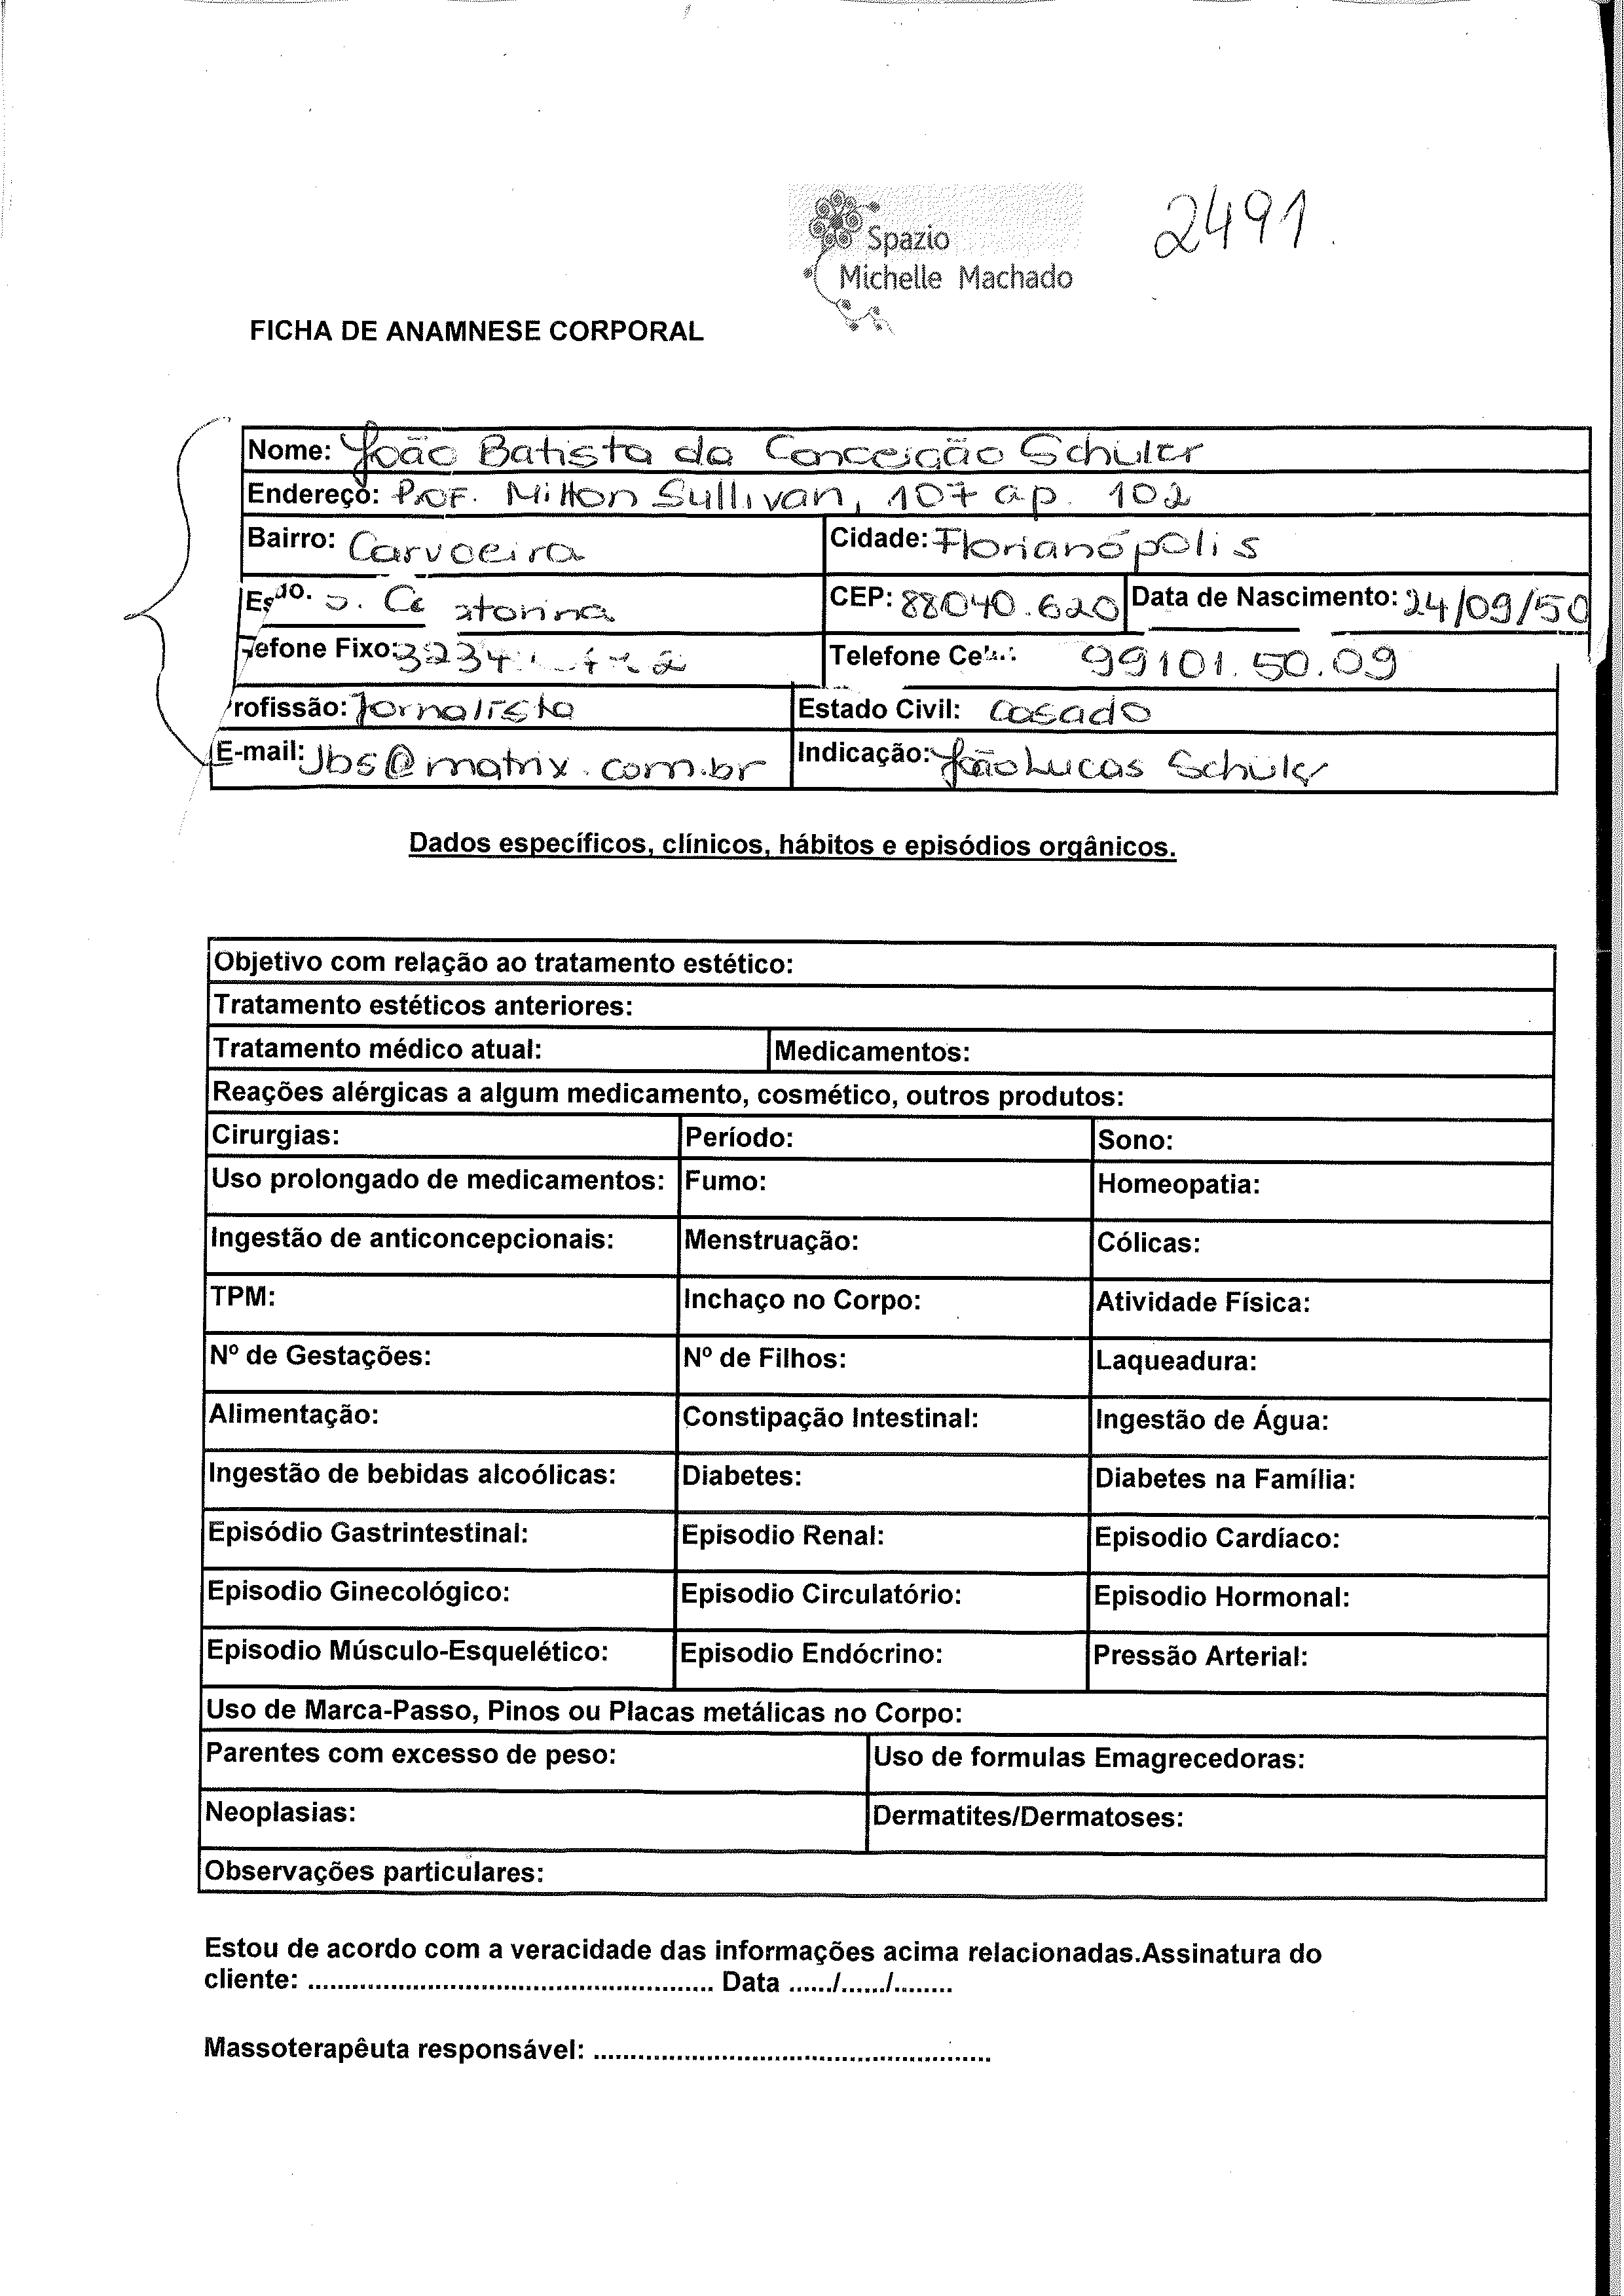 2491
Spazio
Michelle Machado
FICHA DE ANAMNESE CORPORAL
Nome: João Batista da Conceição Schuler
Endereço: Prof. Milton Sullivan, 107 ap. 102
Bairro: Carvoeira Cidade: Florianópolis
S. Catarina CEP: 88040.620 Data de Nascimento: 24/09/50
efone Fixo: Telefone 99101.50.09
rofissão: Jornalista Estado Civil: Casado
E-mail: Jbs@matrix.com.br Indicação: João Lucas Schuler
Dados específicos, clínicos, hábitos e episódios orgânicos.
Objetivo com relação ao tratamento estético:
Tratamento estéticos anteriores:
Tratamento médico atual: Medicamentos:
Reações alérgicas a algum medicamento, cosmético, outros produtos:
Cirurgias: Período: Sono:
Uso prolongado de medicamentos: Fumo: Homeopatia:
Ingestão de anticoncepcionais: Menstruação: Cólicas:
TPM: Inchaço no Corpo: Atividade Física:
Nº de Gestações: Nº de Filhos: Laqueadura:
Alimentação: Constipação Intestinal: Ingestão de Água:
Ingestão de bebidas alcoólicas: Diabetes: Diabetes na Família:
Episódio Gastrintestinal: Episodio Renal: Episodio Cardíaco:
Episodio Ginecológico: Episodio Circulatório: Episodio Hormonal:
Episodio Músculo-Esquelético: Episodio Endócrino: Pressão Arterial:
Uso de Marca-Passo, Pinos ou Placas metálicas no Corpo:
Parentes com excesso de peso: Uso de formulas Emagrecedoras:
Neoplasias: Dermatites/Dermatoses:
Observações particulares:
Estou de acordo com a veracidade das informações acima relacionadas.Assinatura do
cliente: ................................................ Data ....../....../........
Massoterapêuta responsável: ......................................................